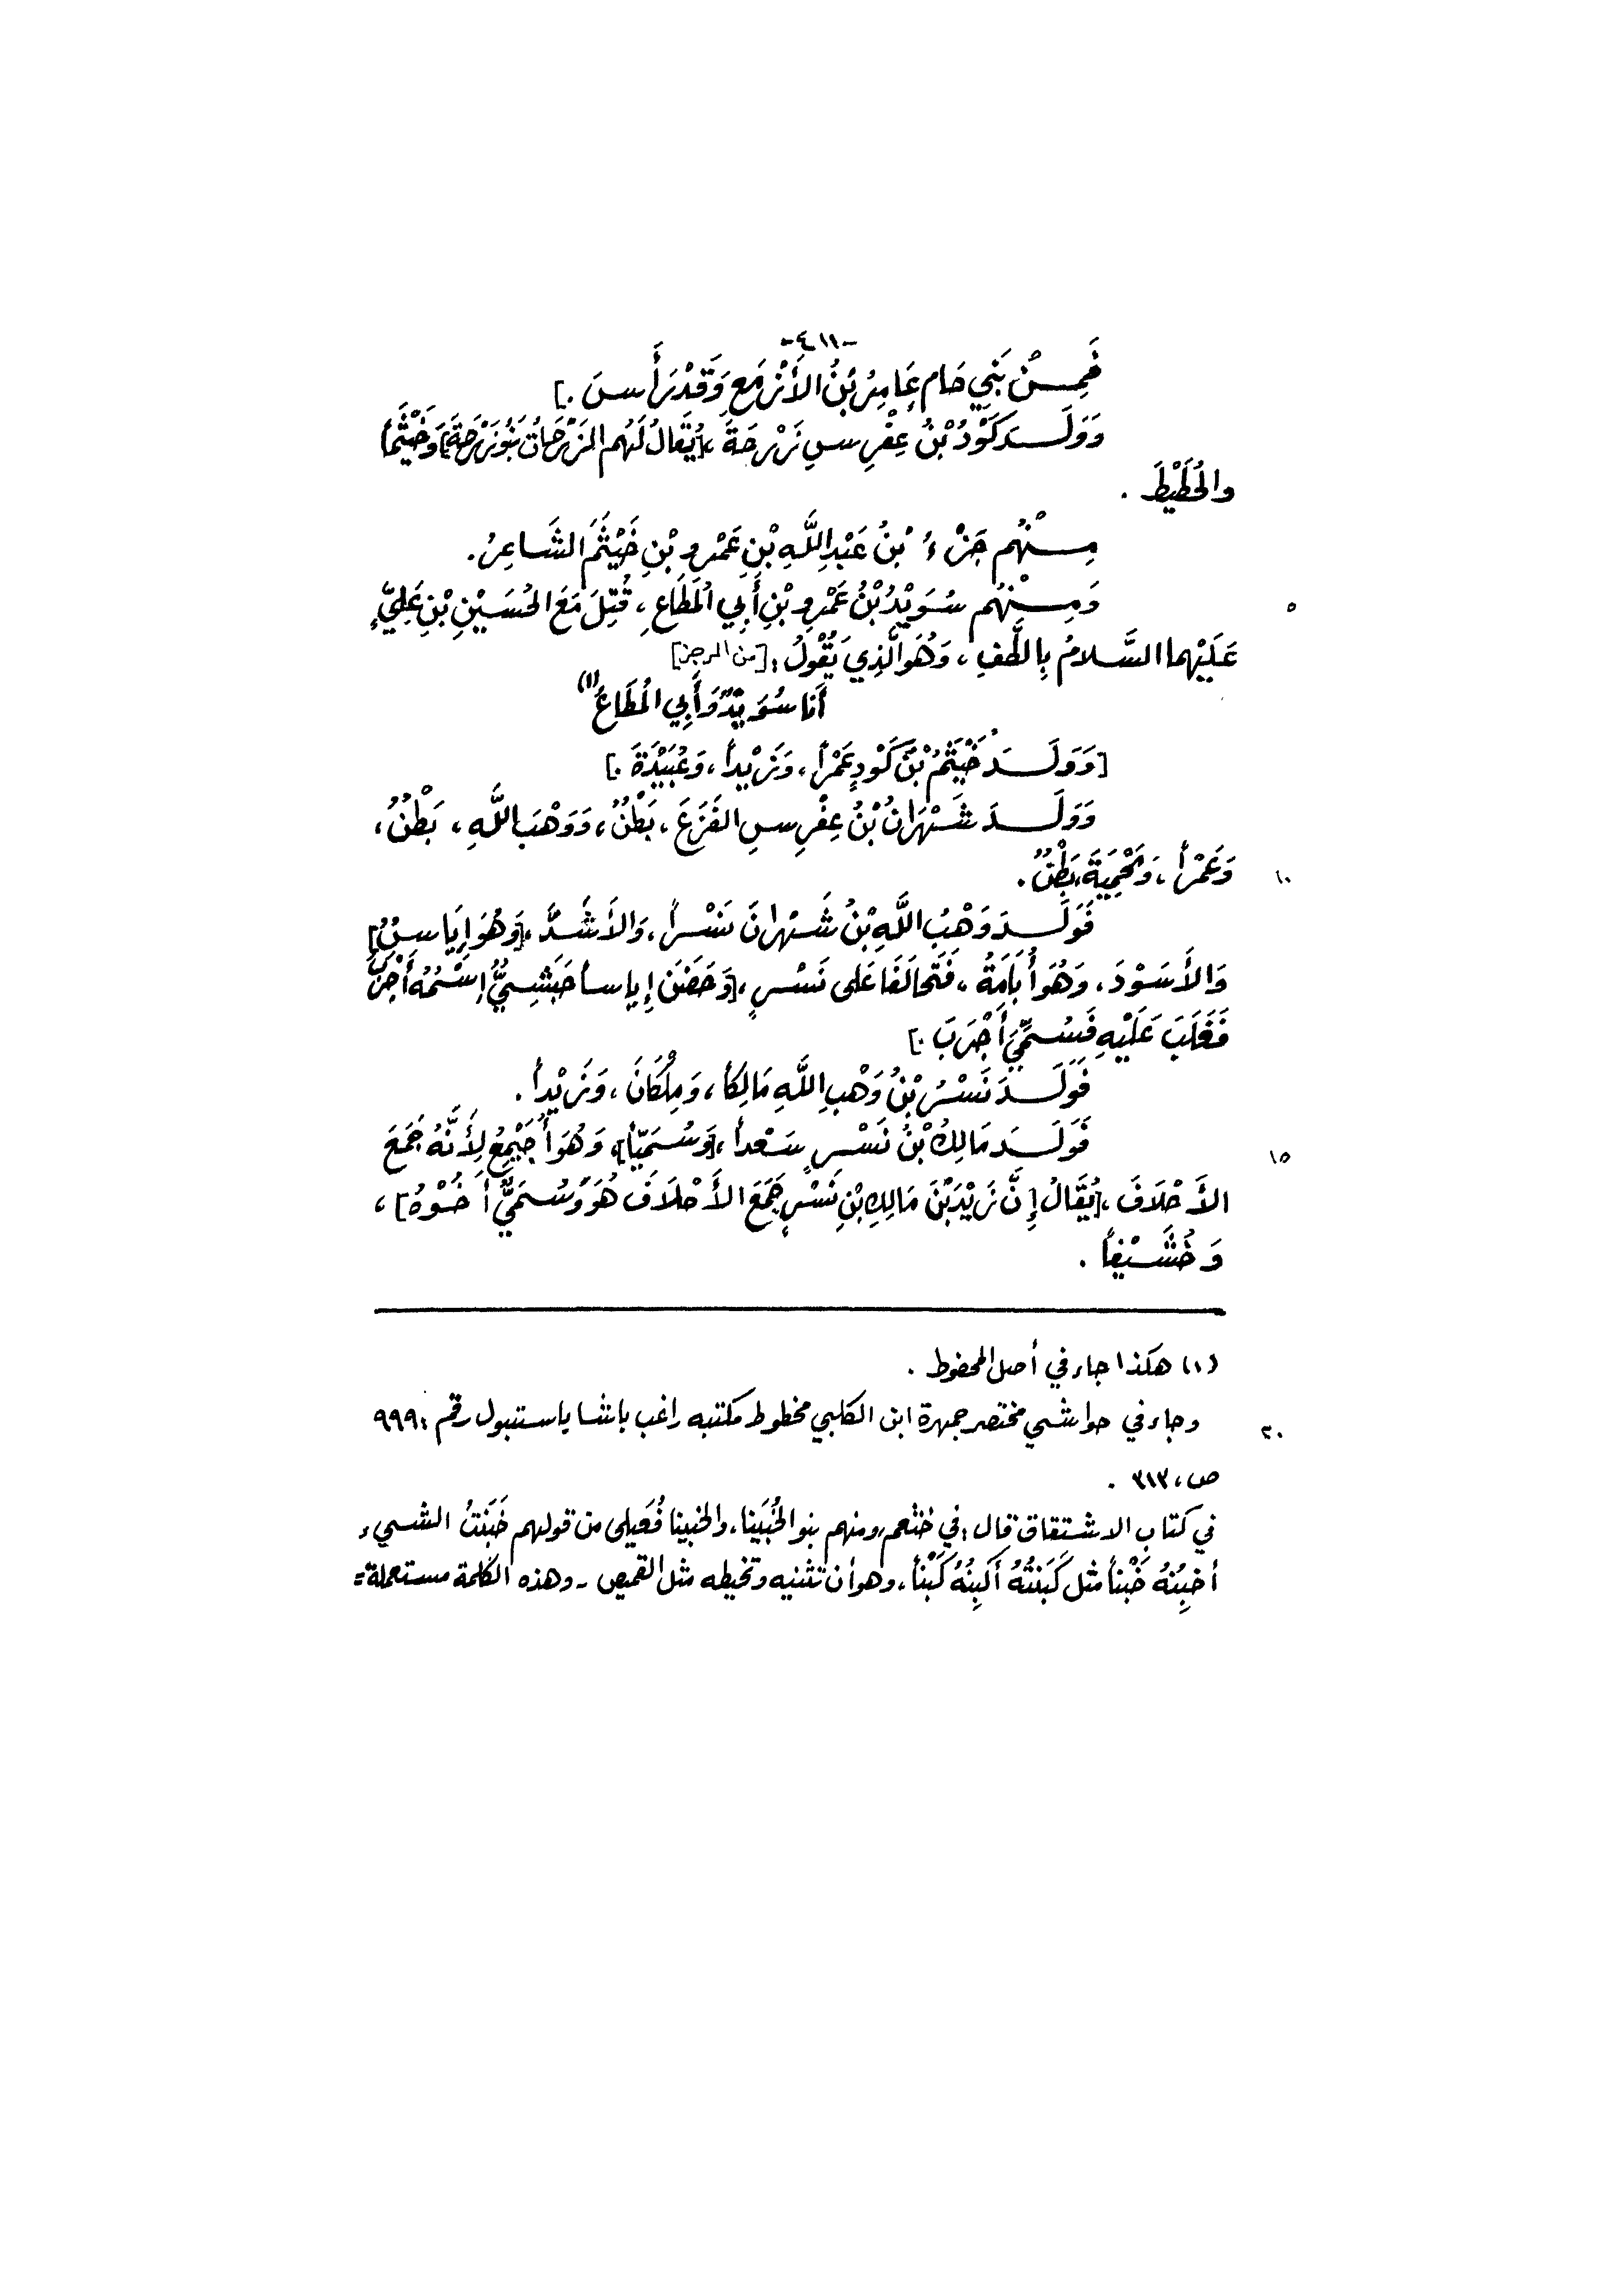 -٤١١-
فَمِنْ بَنِي حَام عَامِرُ بْنُ الأَزْمَعِ وَقَدْ رَأَسَ.]
وَوَلَدَ كَوْدُ بْنُ عِفْرِسِ زَرْحَةَ،[يُقَالُ لَهُم الزَرْحَاتُ بَنُو زَرْحَةَ]وَخَيْثَماً
والحُطَيْطَ .
مِنْهُم جَزْءُ بْنُ عَبْدِ اللَّهِ بْنِ عَمْرِو بْنِ خَيْثَمَ الشَاعِرُ.
وَمِنْهُم سُوَيْدُ بْنُ عَمْرِو بْنِ أَبِي المُطَاعِ، قُتِلَ مَعَ الحُسَيْنِ بْنِ عَلِيٍّ ٥
عَلَيْهما السَّلامُ بِالطَّفِ، وَهُوَ الَّذِي يَقُوْلُ: [من الرجز]
أَنَا سُوَيْدٌ وَأَبِي المُطَاعُ(١)
[وَوَلَدَ خَيْثَمُ بْنُ كَوْدٍ عَمْراً، وَزَيْداً، وَعُبَيْدَةَ.]
وَوَلَدَ شَهْرَانُ بْنُ عِفْرِسِ الفَزَعَ، بَطْنٌ، وَوَهْبَ اللَّهِ، بَطْنٌ،
وَعَمْراً، وَمَحْمِيَةَ، بَطْنٌ. ١٠
فَوَلَدَ وَهْبُ اللَّهِ بْنُ شَهْرانَ نَسْراً، وَالأَشَدَّ،[وَهُوَ إِيَاسٌ]
وَالأَسْوَدَ، وَهُوَ أُبَامَةُ، فَتَحالَفَا عَلى نَسْرٍ،[وَحَضَنَ إِياساً حَبَشِيٌّ إسْمُهُ أَجْرَبُ
فَغَلَبَ عَلَيْهِ فَسُمِّيَ أَجْرَبَ.]
فَوَلَدَ نَسْرُ بْنُ وَهْبِ اللَّهِ مَالِكاً، وَمِلْكَانَ، وَزَيْداً.
فَوَلَدَ مَالِكُ بْنُ نَسْرٍ سَعْداً،[وَسُمَيّاً]، وَهُوَ أُجَيْمِعُ لِأَنَّهُ جَمَعَ ١٥
الأَحْلَافَ،[يُقَالُ إِنَّ زَيْدَ بْنَ مَالِكِ بْنِ نَسْرٍ جَمَعَ الأَحْلَافَ هُوَ وَسُمَيٌّ أَخُوْهُ]،
وَخُشَيْفاً .
(١) هكذا جاء في أصل المحفوظ .
وجاء في حواشي مختصر جمهرة ابن الكلبي مخطوط مكتبه راغب باشا ياستبول رقم: ٩٩٩ ٢٠
ص، ٣١٣ .
في كتاب الاشتقاق قال: في خثعم، ومنهم بنو الخُبَينا، والخبينا فُعَيلى من قولهم خَبَنْتُ الشيء
أخبِنُهُ خَبْناً مثل كَبَنتُهُ أكبِنُهُ كَبْناً، وهو أن تثنيه وتخيطه مثل القميص - وهذه الكلمة مستعملة=